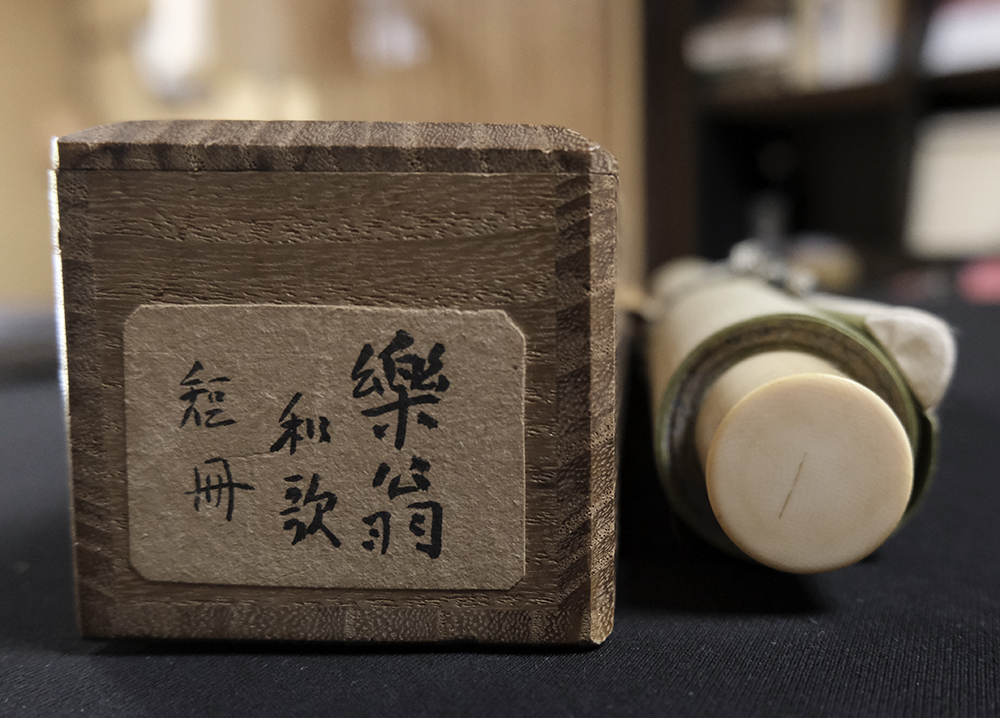 樂翁
和歌
短冊